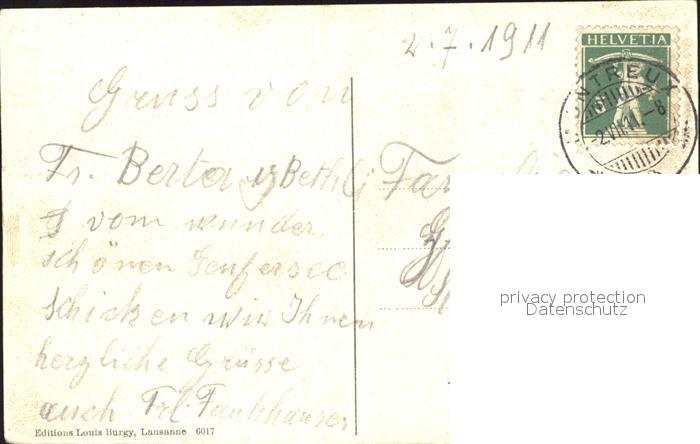 2.7.1911
HELVETIA
MONTREUX
2.VII.11.-8
Gruss von
Fr. Berta u Bethli
vom wunder
schönen Genfersee
schicken wir Ihnen
herzliche Grüsse
auch Frl. Fankhauser
Editions Louis Burgy, Lausanne 6017
privacy protection
Datenschutz